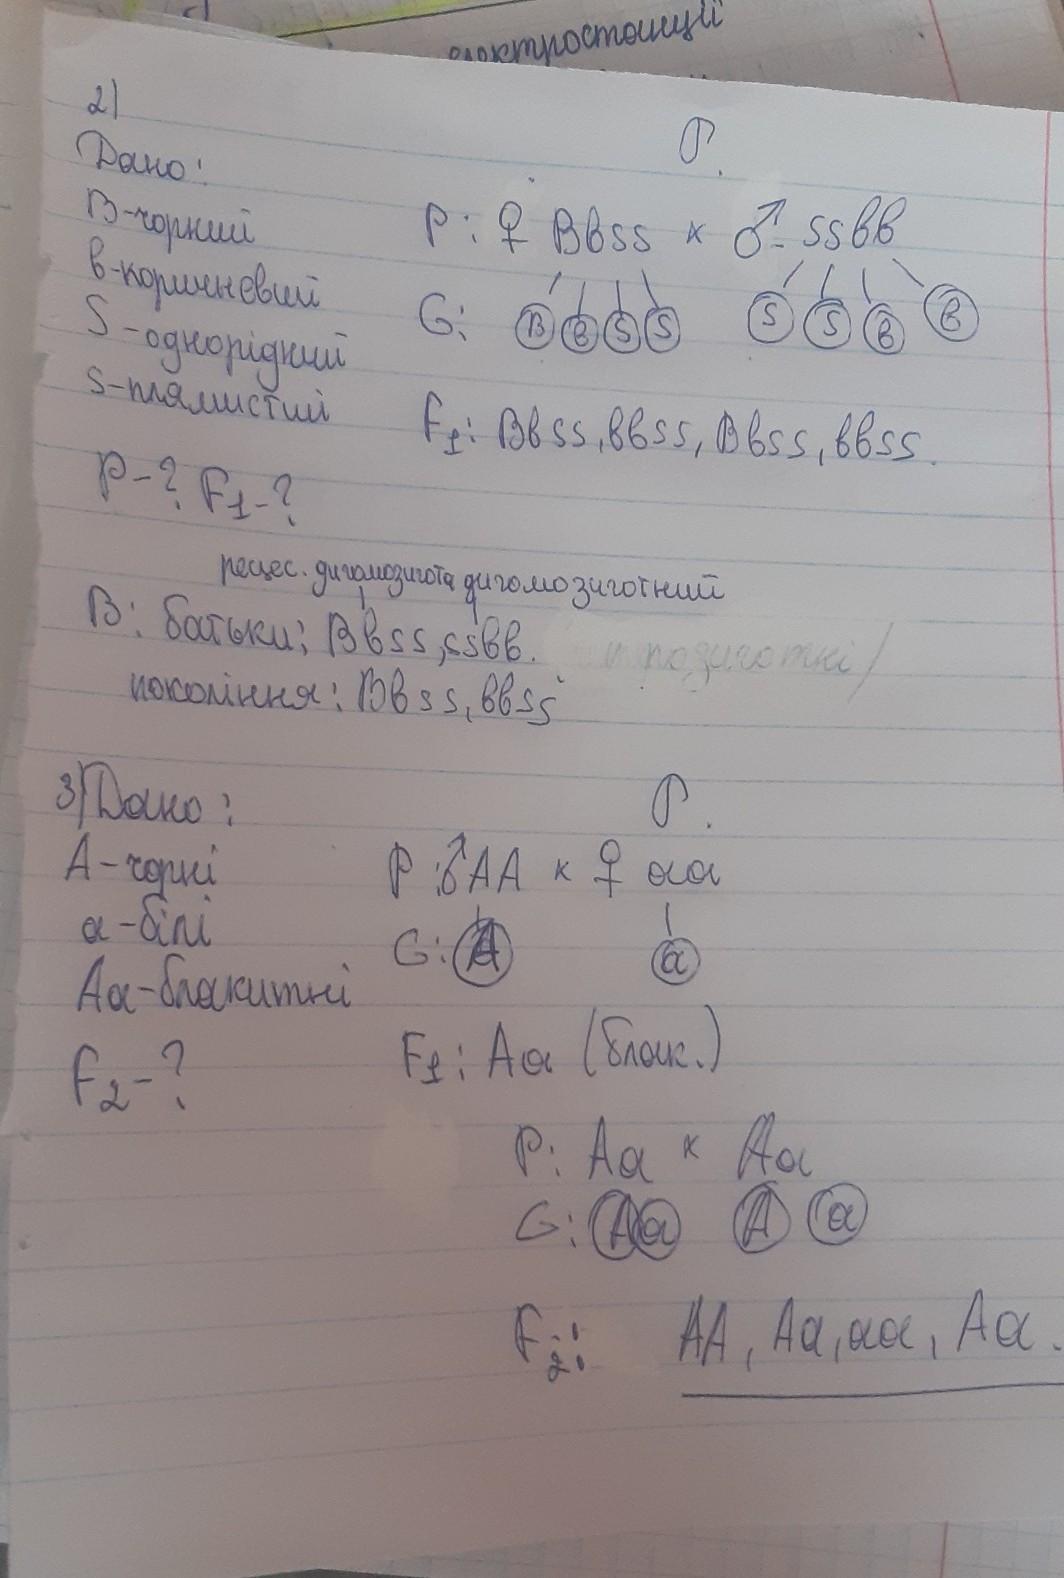 електростанції
2)
Дано:
B-чорний
в-коричневий
S-однорідний
s-плямистий
P-? F1-?
P: ♀ Bbss x ♂ ssbb
G: B b s s s s b b
F1: Bbss, bbss, Bbss, bbss.
рецес. дигомозигота дигомозиготний
В: батьки: Bbss, ssbb.
покоління: Bbss, bbss
3) Дано:
A-чорні
a-білі
Aa-блакитні
F2-?
P: ♂AA x ♀ aa
G: A a
F1: Aa (блак.)
P: Aa x Aa
G: A a A a
F2: AA, Aa, aa, Aa.